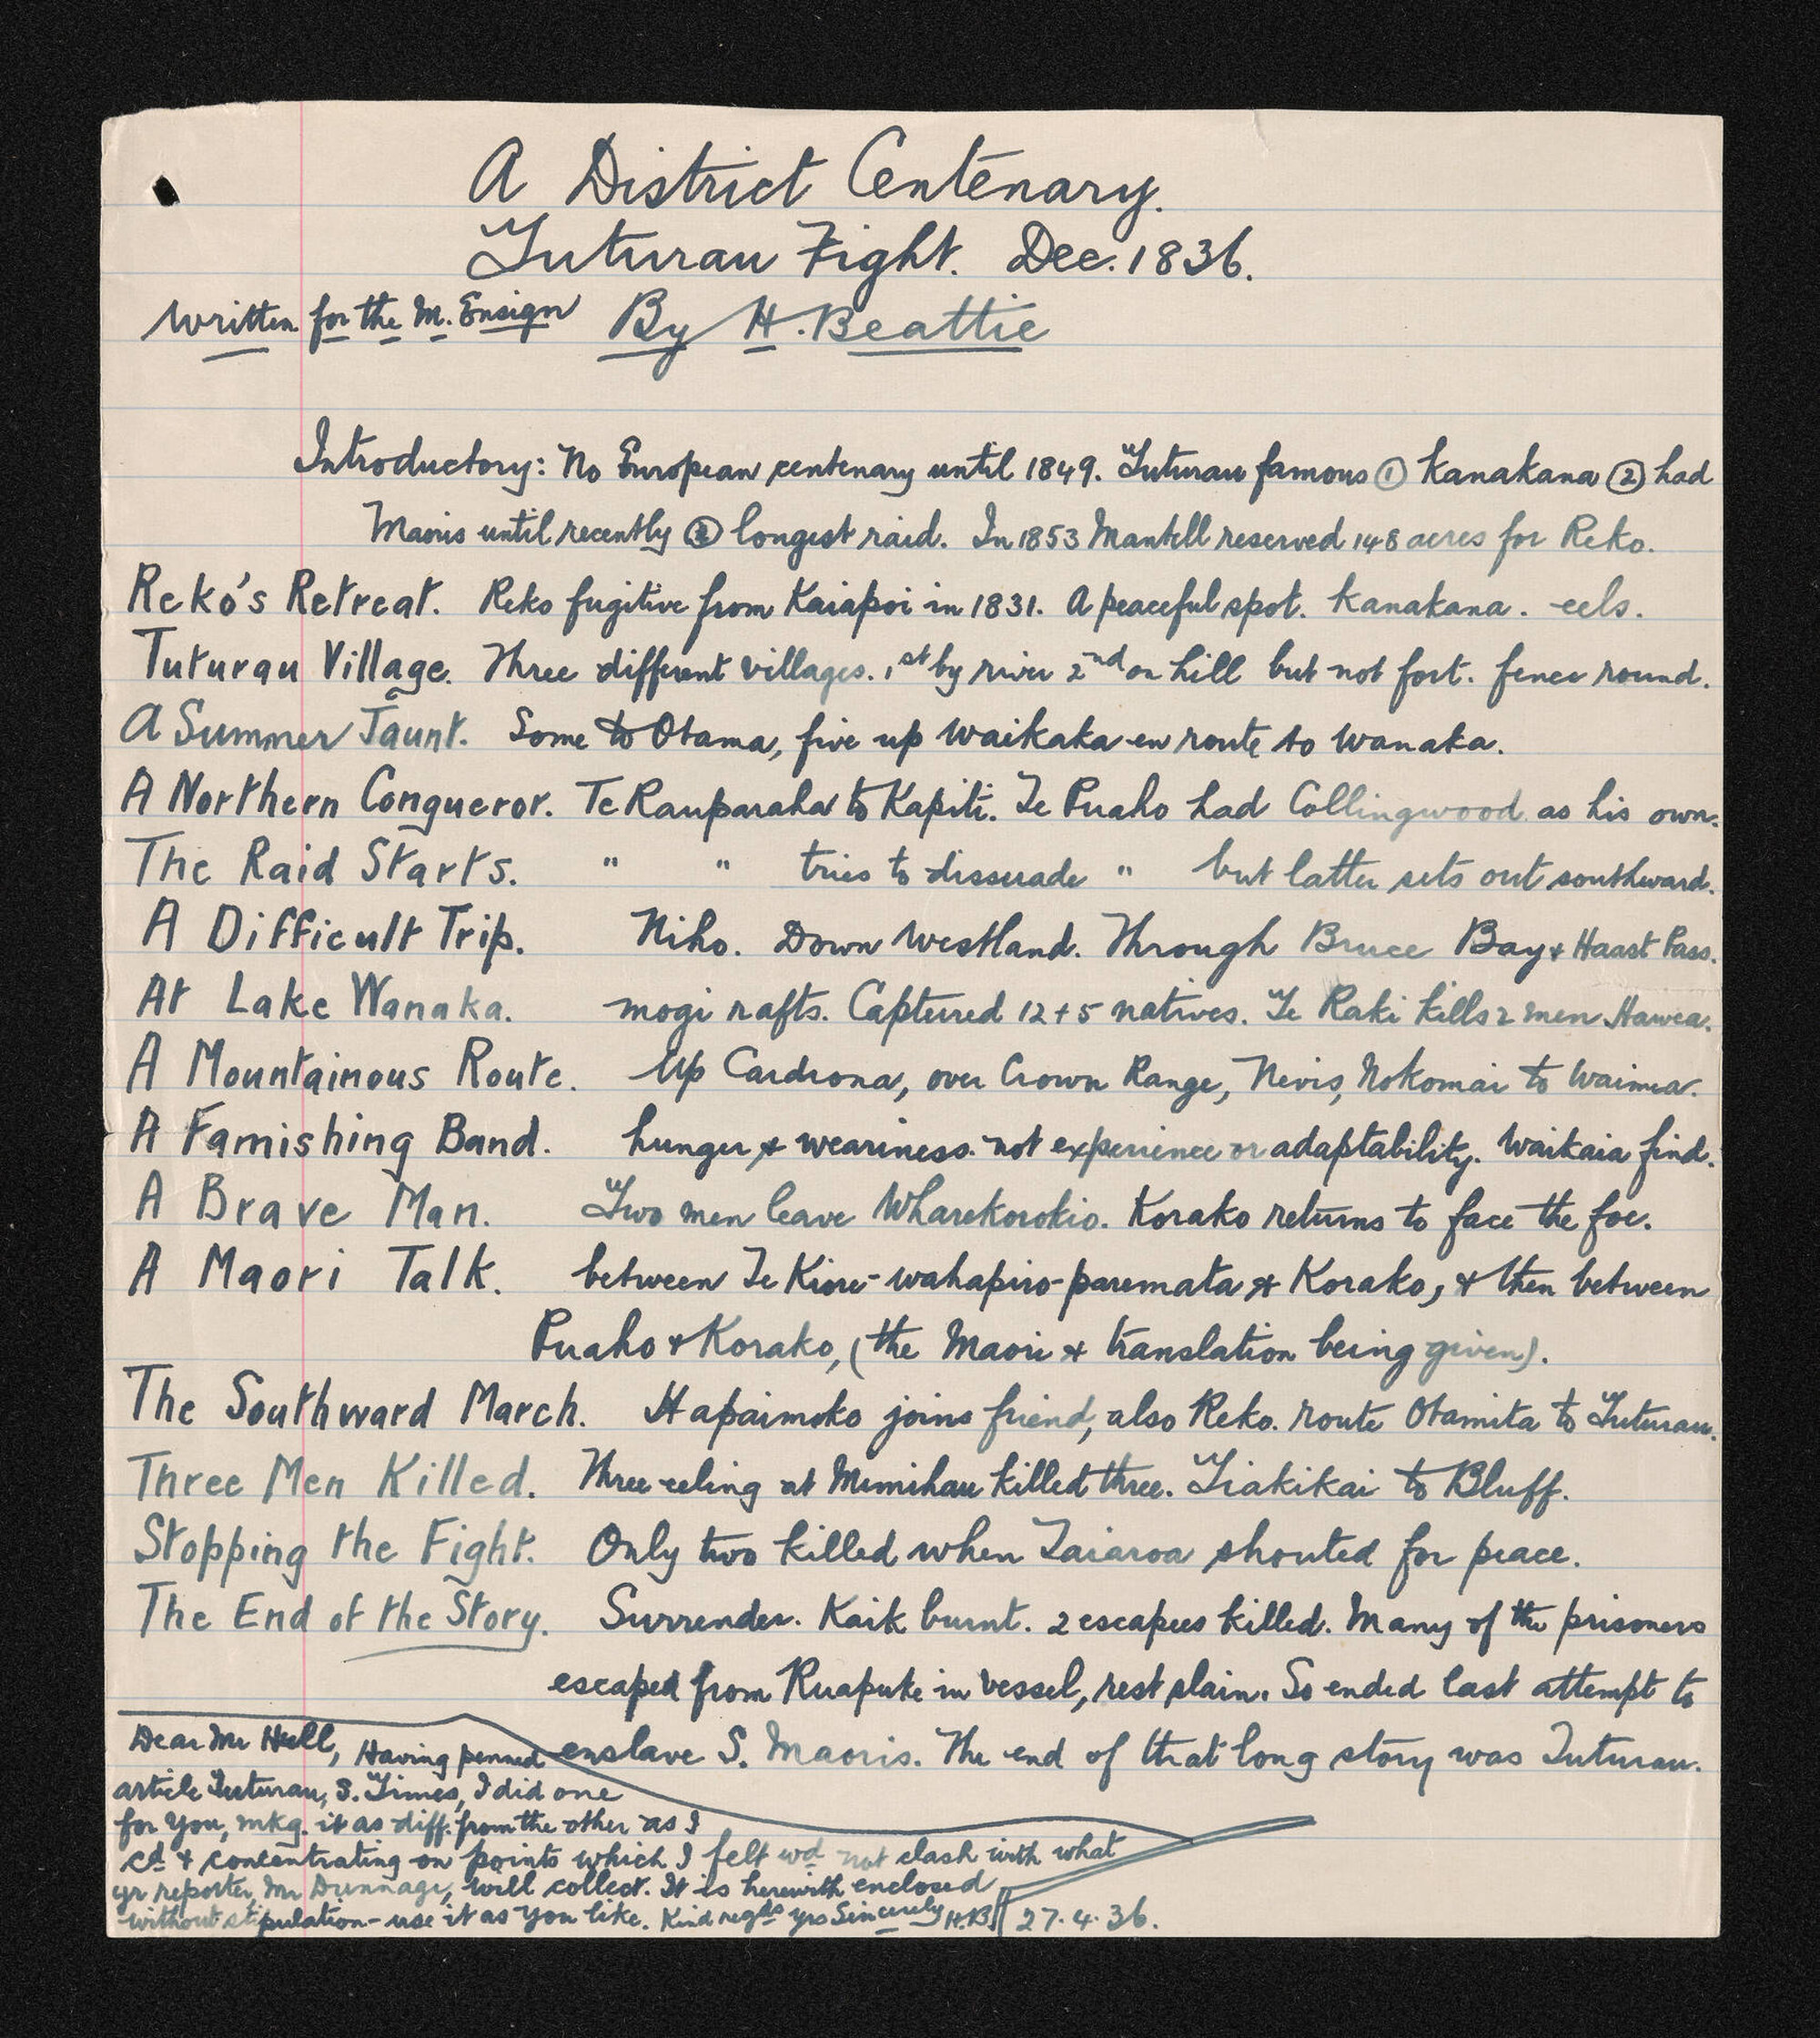 A District Centenary.
Tuturau Fight. Dec. 1836.
Written for the M. Ensign By H. Beattie
Introductory: No European centenary until 1849. Tuturau famous ① Kanakana ② had
Maoris until recently ③ longest raid. In 1853 Mantell reserved 148 acres for Reko.
Reko's Retreat. Reko fugitive from Kaiapoi in 1831. A peaceful spot. Kanakana. eels.
Tuturau Village. Three different villages. 1st by river 2nd on hill but not fort. fence round.
A Summer Jaunt. Some to Otama, five up Waikaka en route to Wanaka.
A Northern Conqueror. Te Rauparaha to Kapiti. Te Puaho had Collingwood as his own.
The Raid Starts. " " tries to dissuade " but latter sets out southward.
A Difficult Trip. Niho. Down Westland. Through Bruce Bay & Haast Pass.
At Lake Wanaka. mogi rafts. Captured 12 + 5 natives. Te Raki kills 2 men Hawea.
A Mountainous Route. Up Cardrona, over Crown Range, Nevis, Nokomai to Waimea.
A Famishing Band. hunger & weariness. not experience or adaptability. Waikaia find.
A Brave Man. Two men leave Wharekorokio. Korako returns to face the foe.
A Maori Talk. between Te Kiore-wahapiro-paremata & Korako, & then between
Puaho & Korako, (the Maori & translation being given).
The Southward March. Hapaimoko joins friend, also Reko. route Otamita to Tuturau.
Three Men Killed. Three eeling at Mimihau killed three. Tiakikai to Bluff.
Stopping the Fight. Only two killed when Taiaroa shouted for peace.
The End of the Story. Surrender. Kaik burnt. 2 escapees killed. Many of the prisoners
escaped from Ruapuke in vessel, rest slain. So ended last attempt to
enslave S. Maoris. The end of that long story was Tuturau.
Dear Mr Hull, Having penned
article Tuturau, S. Times, I did one
for you, mkg. it as diff. from the other as I
cd. & concentrating on points which I felt wd not clash with what
yr reporter, Mr Dunnage, will collect. It is herewith enclosed
without stipulation - use it as you like. Kind regds yrs Sincerely H.B. 27.4.36.